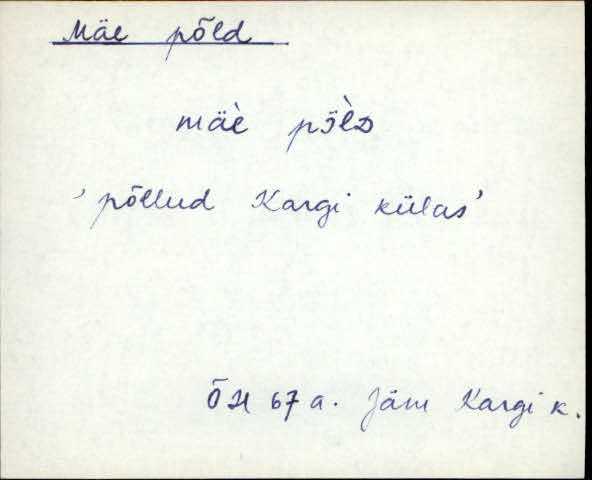 Mäe põld
mäè pɜ̈̀lD
'põllud Kargi külas'
ÕH 67 a. Jäm Kargi k.